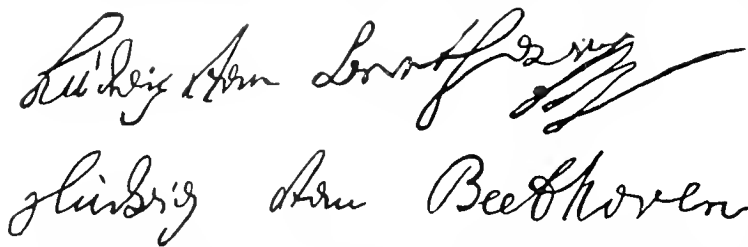 Ludwig van Beethoven
Ludwig van Beethoven